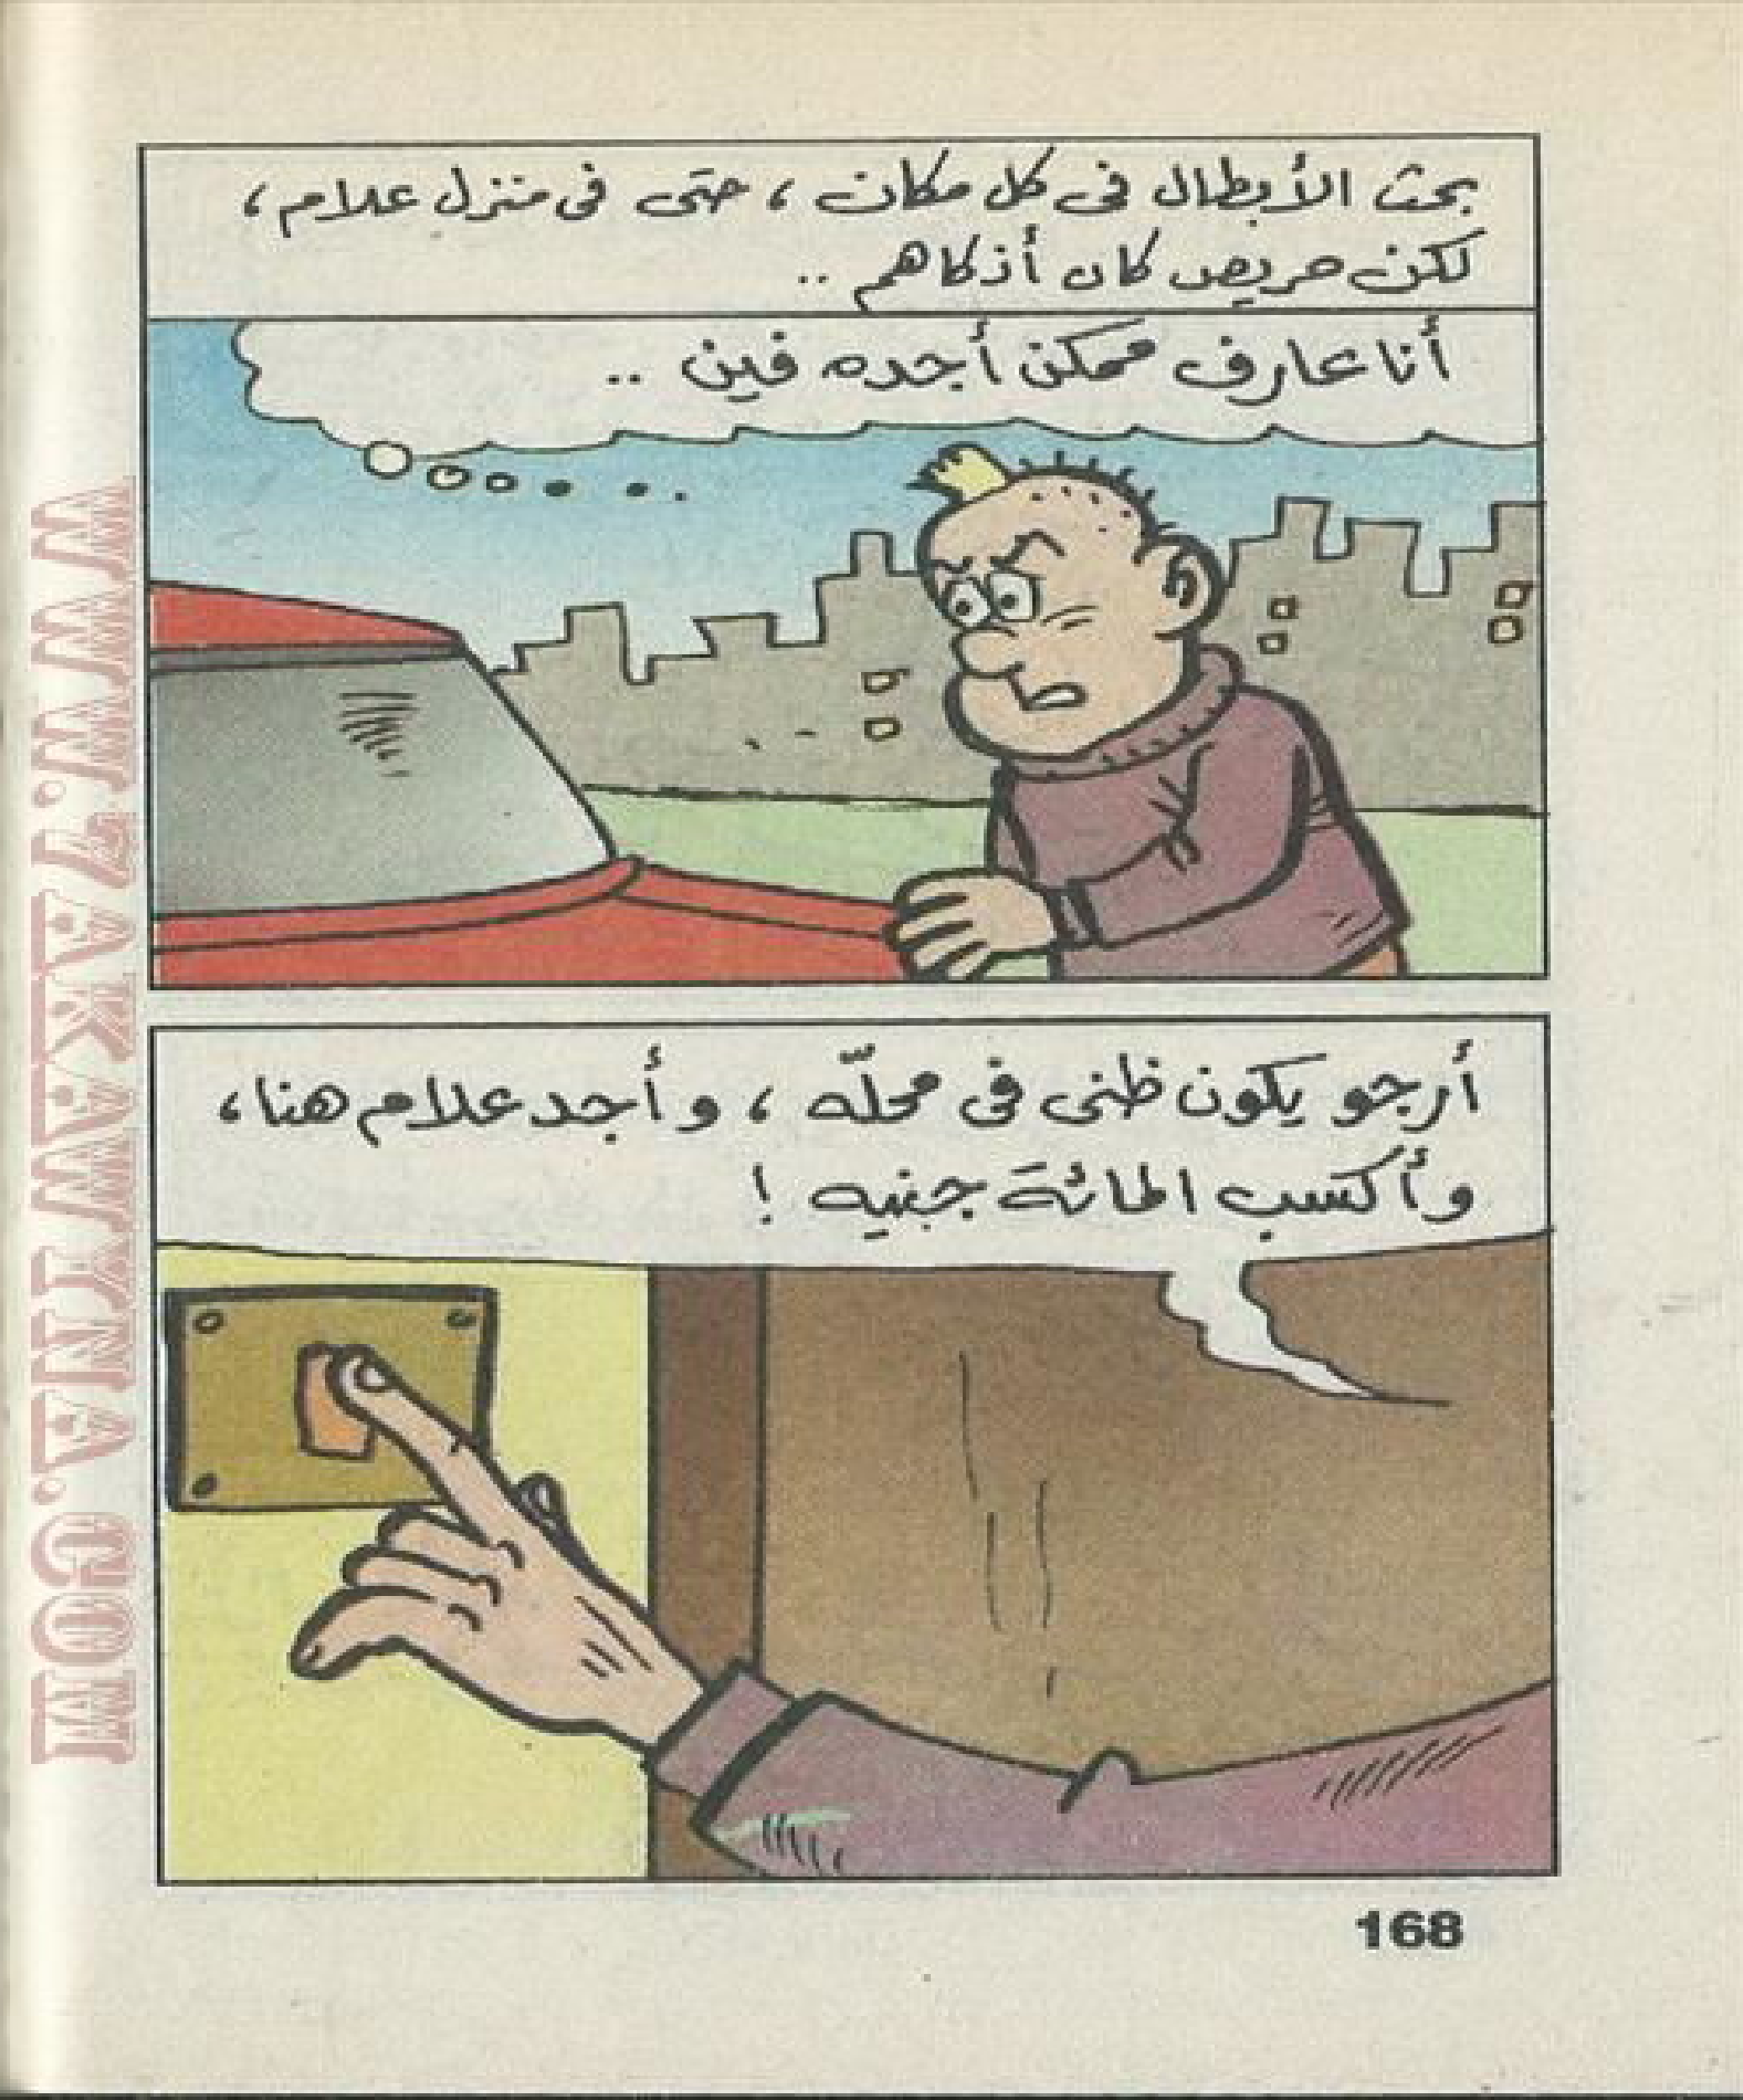 بحث الأبطال فى كل مكان ، حتى فى منزل علام ،
لكن حريص كان أذكاهم ..
أنا عارف ممكن أجده فين ..
أرجو يكون ظنى فى محلّه ، وأجد علام هنا ،
وأكسب المائة جنيه !
168
WWW.ZAKAWYNA.COM